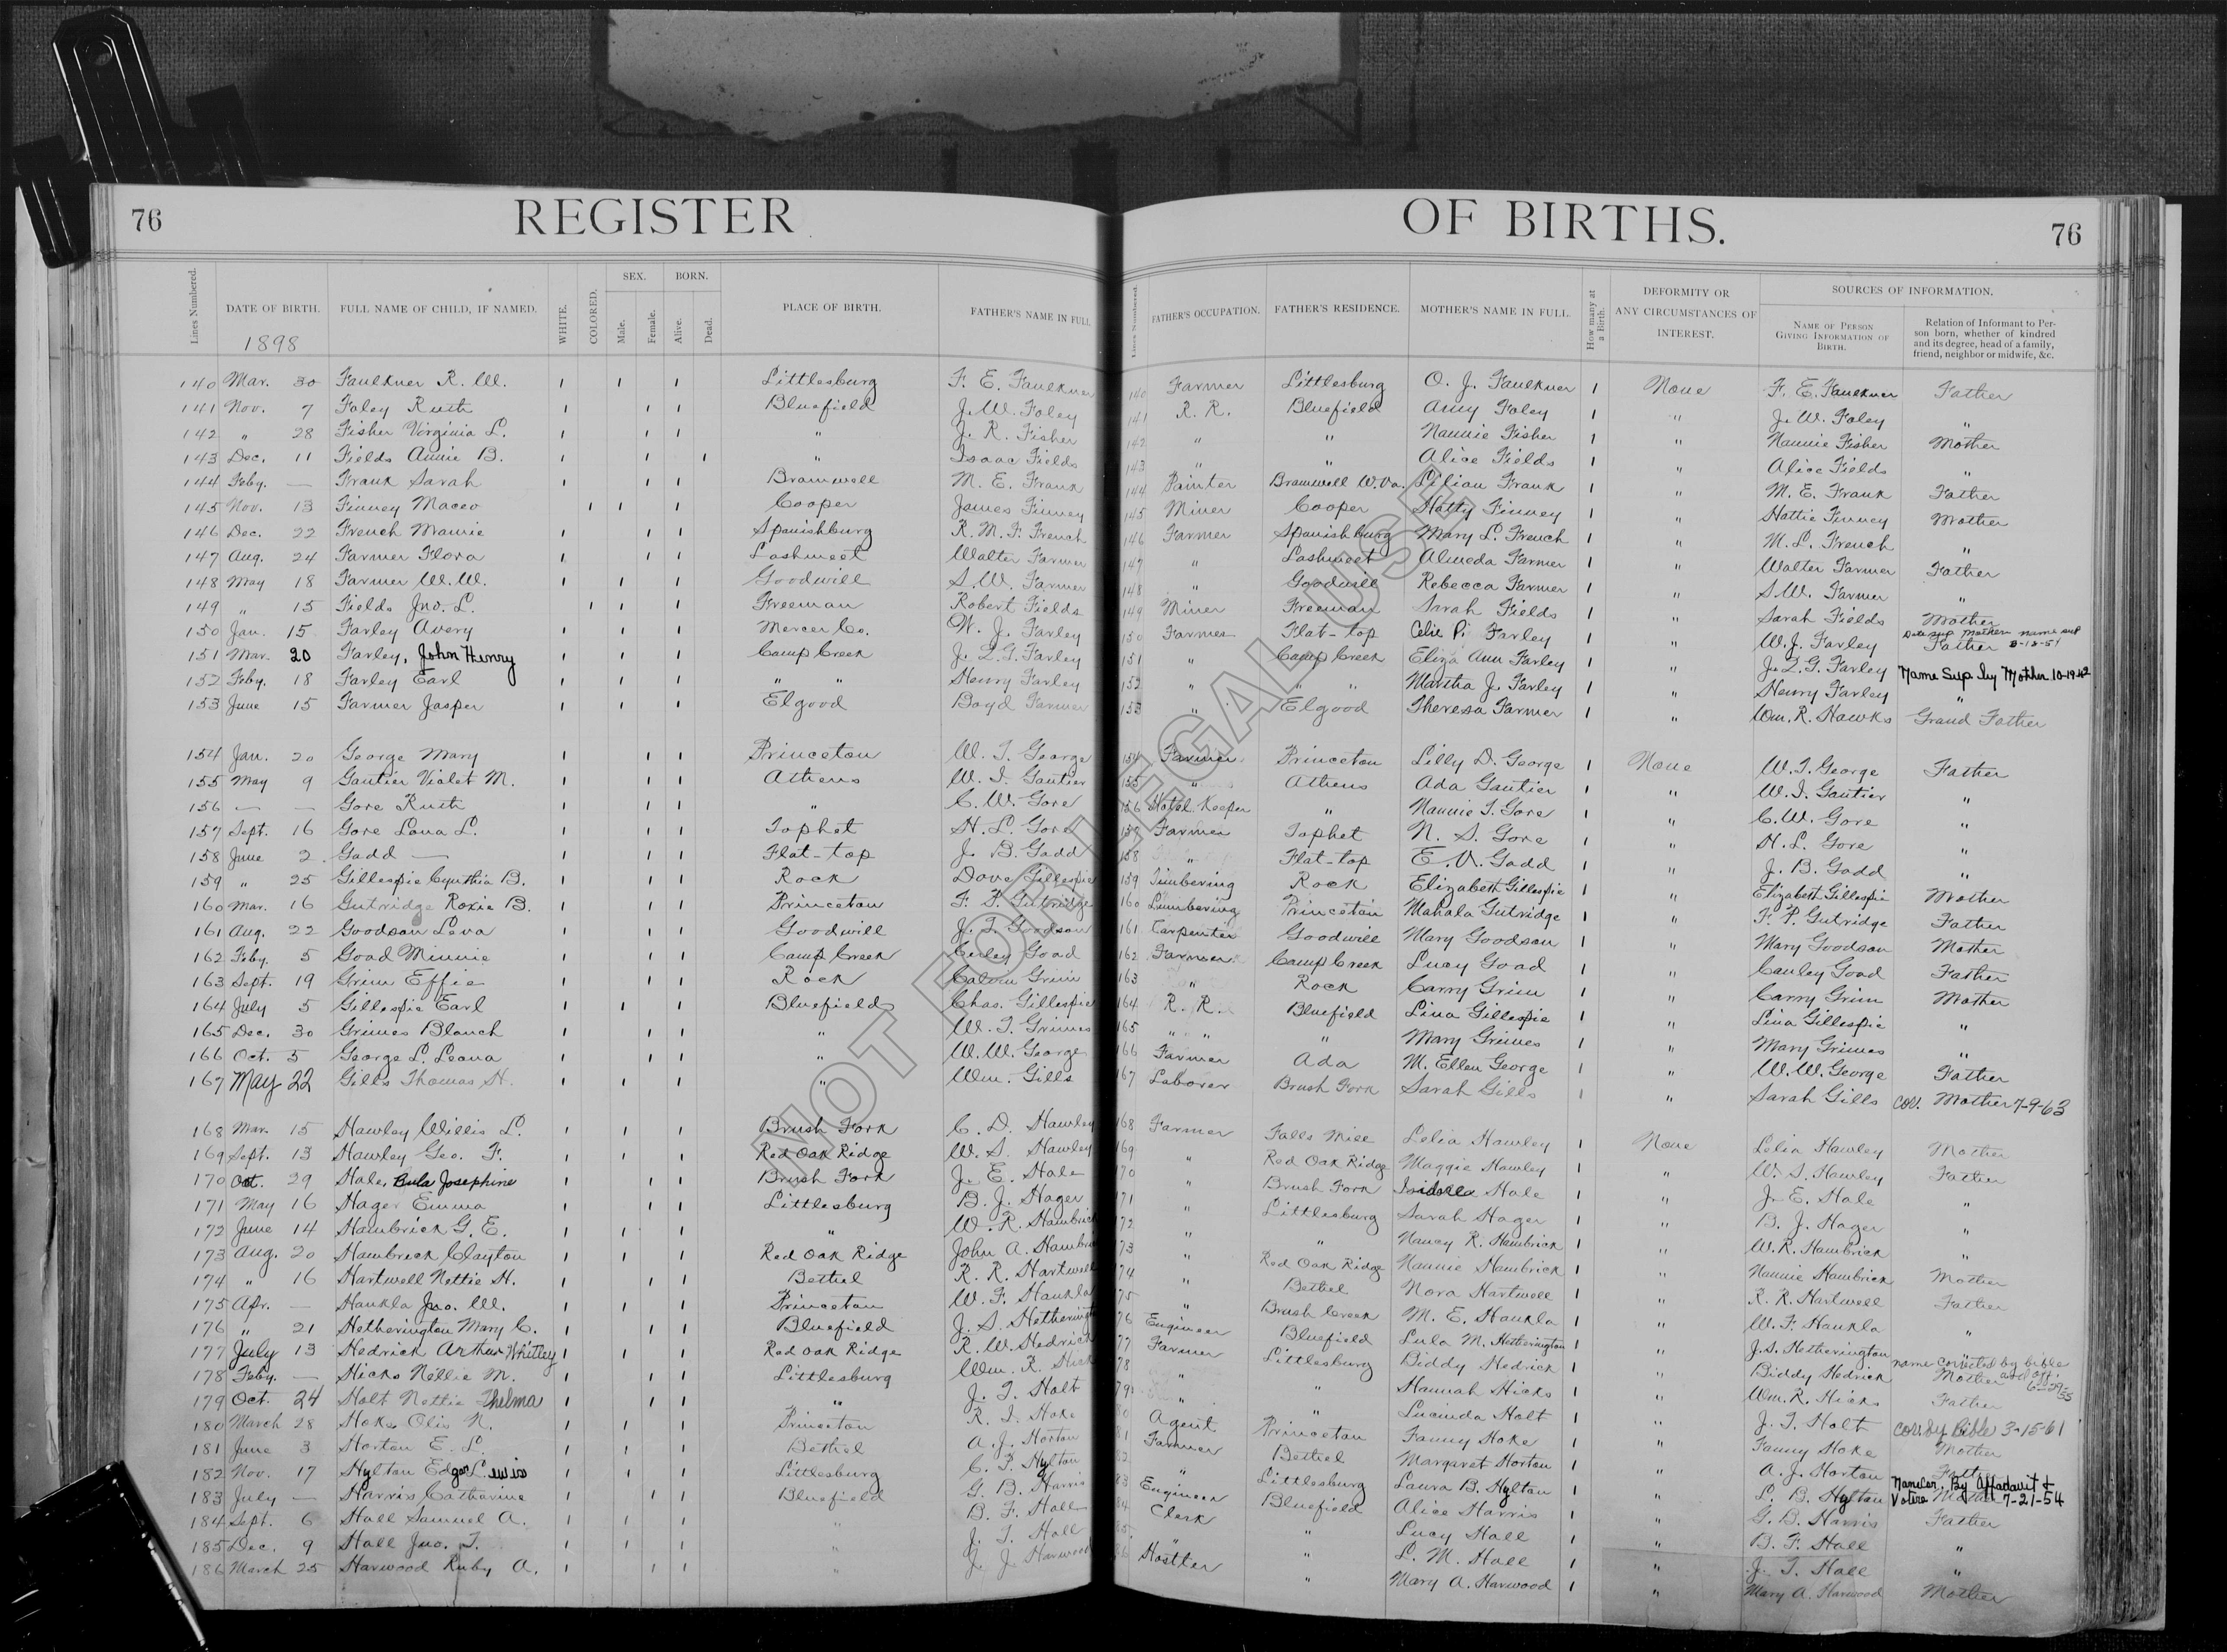 76 REGISTER OF BIRTHS. 76
Lines Numbered. DATE OF BIRTH. FULL NAME OF CHILD, IF NAMED. WHITE. COLORED. SEX. Male. Female. BORN. Alive. Dead. PLACE OF BIRTH. FATHER'S NAME IN FULL Lines Numbered. FATHER'S OCCUPATION. FATHER'S RESIDENCE. MOTHER'S NAME IN FULL. How many at a Birth. DEFORMITY OR ANY CIRCUMSTANCES OF INTEREST. SOURCES OF INFORMATION. NAME OF PERSON GIVING INFORMATION OF BIRTH. Relation of Informant to Person born, whether of kindred and its degree, head of a family, friend, neighbor or midwife, &c.
1898
140 Mar. 30 Faulkner R. W. 1 1 1 Littlesburg F. E. Faulkner 140 Farmer Littlesburg O. J. Faulkner 1 None F. E. Faulkner Father
141 Nov. 7 Foley Ruth 1 1 1 Bluefield J. W. Foley 141 R. R. Bluefield Amy Foley 1 " J. W. Foley "
142 " 28 Fisher Virginia L. 1 1 1 " J. R. Fisher 142 " " Nannie Fisher 1 " Nannie Fisher Mother
143 Dec. 11 Fields Annie B. 1 1 1 " Isaac Fields 143 " " Alice Fields 1 " Alice Fields "
144 Feby. — Frank Sarah 1 1 1 Bramwell M. E. Frank 144 Painter Bramwell W.Va. Lilian Frank 1 " M. E. Frank Father
145 Nov. 13 Finney Maceo 1 1 1 Cooper James Finney 145 Miner Cooper Hatty Finney 1 " Hattie Finney Mother
146 Dec. 22 French Mamie 1 1 1 Spanishburg R. M. F. French 146 Farmer Spanishburg Mary L. French 1 " M. L. French "
147 Aug. 24 Farmer Flora 1 1 1 Lashmeet Walter Farmer 147 " Lashmeet Almeda Farmer 1 " Walter Farmer Father
148 May 18 Farmer W. W. 1 1 1 Goodwill S. W. Farmer 148 " Goodwill Rebecca Farmer 1 " S. W. Farmer "
149 " 15 Fields Jno. L. 1 1 1 Freeman Robert Fields 149 Miner Freeman Sarah Fields 1 " Sarah Fields Mother
150 Jan. 15 Farley Avery 1 1 1 Mercer Co. W. J. Farley 150 Farmer Flat-top Celie P. Farley 1 " W. J. Farley Father Date sup Mothers name sup 8-13-51
151 Mar. 20 Farley, John Henry 1 1 1 Camp Creek J. L. G. Farley 151 " Camp Creek Eliza Ann Farley 1 " J. L. G. Farley Name Sup by Mother 10-19-42
152 Feby. 18 Farley Earl 1 1 1 " " Henry Farley 152 " " " Martha J. Farley 1 " Henry Farley "
153 June 15 Farmer Jasper 1 1 1 Elgood Boyd Farmer 153 " Elgood Theresa Farmer 1 " Wm. R. Hawks Grand Father
154 Jan. 20 George Mary 1 1 1 Princeton W. T. George 154 Farmer Princeton Lilly D. George 1 None W. T. George Father
155 May 9 Gautier Violet M. 1 1 1 Athens W. I. Gautier 155 " Athens Ada Gautier 1 " W. I. Gautier "
156 — — Gore Ruth 1 1 1 " C. W. Gore 156 Hotel Keeper " Nannie T. Gore 1 " C. W. Gore "
157 Sept. 16 Gore Lona L. 1 1 1 Tophet H. L. Gore 157 Farmer Tophet N. S. Gore 1 " H. L. Gore "
158 June 2 Gadd — 1 1 1 Flat-top J. B. Gadd 158 " Flat-top E. V. Gadd 1 " J. B. Gadd "
159 " 25 Gillespie Cynthia B. 1 1 1 Rock Dove Gillespie 159 Timbering Rock Elizabeth Gillespie 1 " Elizabeth Gillespie Mother
160 Mar. 16 Gutridge Roxie B. 1 1 1 Princeton F. P. Gutridge 160 Lumbering Princeton Mahala Gutridge 1 " F. P. Gutridge Father
161 Aug. 22 Goodson Leva 1 1 1 Goodwill J. T. Goodson 161 Carpenter Goodwill Mary Goodson 1 " Mary Goodson Mother
162 Feby. 5 Goad Minnie 1 1 1 Camp Creek Goad 162 Farmer Camp Creek Lucy Goad 1 " Cauley Goad Father
163 Sept. 19 Grim Effie 1 1 1 Rock Calvin Grim 163 " Rock Carry Grim 1 " Carry Grim Mother
164 July 5 Gillespie Earl 1 1 1 Bluefield Chas. Gillespie 164 R. R. Bluefield Lina Gillespie 1 " Lina Gillespie "
165 Dec. 30 Grimes Blanch 1 1 1 " W. T. Grimes 165 " " " Mary Grimes 1 " Mary Grimes "
166 Oct. 5 George L. Leona 1 1 1 " W. W. George 166 Farmer Ada M. Ellen George 1 " W. W. George Father
167 May 22 Gills Thomas H. 1 1 1 " Wm. Gills 167 Laborer Brush Fork Sarah Gills 1 " Sarah Gills cor. Mother 7-9-63
168 Mar. 15 Hawley Willis L. 1 1 1 Brush Fork C. D. Hawley 168 Farmer Falls Mill Lelia Hawley 1 None Lelia Hawley Mother
169 Sept. 13 Hawley Geo. F. 1 1 1 Red Oak Ridge W. S. Hawley 169 " Red Oak Ridge Maggie Hawley 1 " W. S. Hawley Father
170 Oct. 29 Hale, Bula Josephine 1 1 1 Brush Fork J. E. Hale 170 " Brush Fork Hale 1 " J. E. Hale "
171 May 16 Hager Emma 1 1 1 Littlesburg B. J. Hager 171 " Littlesburg Sarah Hager 1 " B. J. Hager "
172 June 14 Hambrick G. E. 1 1 1 " W. R. Hambrick 172 " " Nancy R. Hambrick 1 " W. R. Hambrick "
173 Aug. 20 Hambrick Clayton 1 1 1 Red Oak Ridge John A. Hambrick 173 " Red Oak Ridge Nannie Hambrick 1 " Nannie Hambrick Mother
174 " 16 Hartwell Nettie H. 1 1 1 Bethel R. R. Hartwell 174 " Bethel Nora Hartwell 1 " R. R. Hartwell Father
175 Apr. — Hankla Jno. W. 1 1 1 Princeton W. F. Hankla 75 " Brush Creek M. E. Hankla 1 " W. F. Hankla "
176 " 21 Hetherington Mary C. 1 1 1 Bluefield J. S. Hetherington 76 Engineer Bluefield Lula M. Hetherington 1 " J. S. Hetherington "
177 July 13 Hedrick Arthur Whitley 1 1 1 Red Oak Ridge R. W. Hedrick 77 Farmer Littlesburg Biddy Hedrick 1 " Biddy Hedrick Mother name corrected by bible and aff.
178 Feby. — Hicks Nellie M. 1 1 1 Littlesburg Wm. R. Hicks 78 " " Hannah Hicks 1 " Wm. R. Hicks Father
179 Oct. 24 Holt Nettie Thelma 1 1 1 " J. T. Holt 79 " " Lucinda Holt 1 " J. T. Holt cor. by Bible 3-15-61
180 March 28 Hoke Olis N. 1 1 1 Princeton R. I. Hoke 80 Agent Princeton Fanny Hoke 1 " Fanny Hoke Mother
181 June 3 Horton E. L. 1 1 1 Bethel A. J. Horton 81 Farmer Bethel Margaret Horton 1 " A. J. Horton Father
182 Nov. 17 Hylton Edgar Lewis 1 1 1 Littlesburg C. P. Hylton 82 " Littlesburg Laura B. Hylton 1 " L. B. Hylton Mother Name cor. By Affadavit & 7-21-54
183 July — Harris Catharine 1 1 1 Bluefield G. B. Harris 83 Engineer Bluefield Alice Harris 1 " G. B. Harris Father
184 Sept. 6 Hall Samuel A. 1 1 1 " B. F. Hall 84 Clerk " Lucy Hall 1 " B. F. Hall "
185 Dec. 9 Hall Jno. T. 1 1 1 " J. T. Hall 85 " " L. M. Hall 1 " J. T. Hall "
186 March 25 Harwood Ruby A. 1 1 1 " J. J. Harwood 86 Hostler " Mary A. Harwood 1 " Mary A. Harwood Mother
NOT FOR LEGAL USE